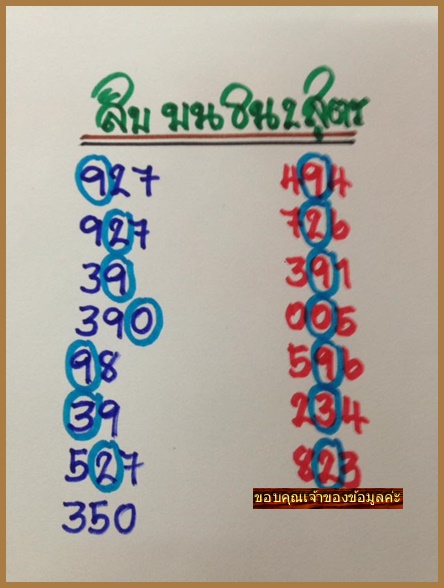 สิบ บน ชน 2 สูตร
927 494
927 726
39 391
390 005
98 596
39 234
527 823
ขอบคุณเจ้าของข้อมูลค่ะ
350